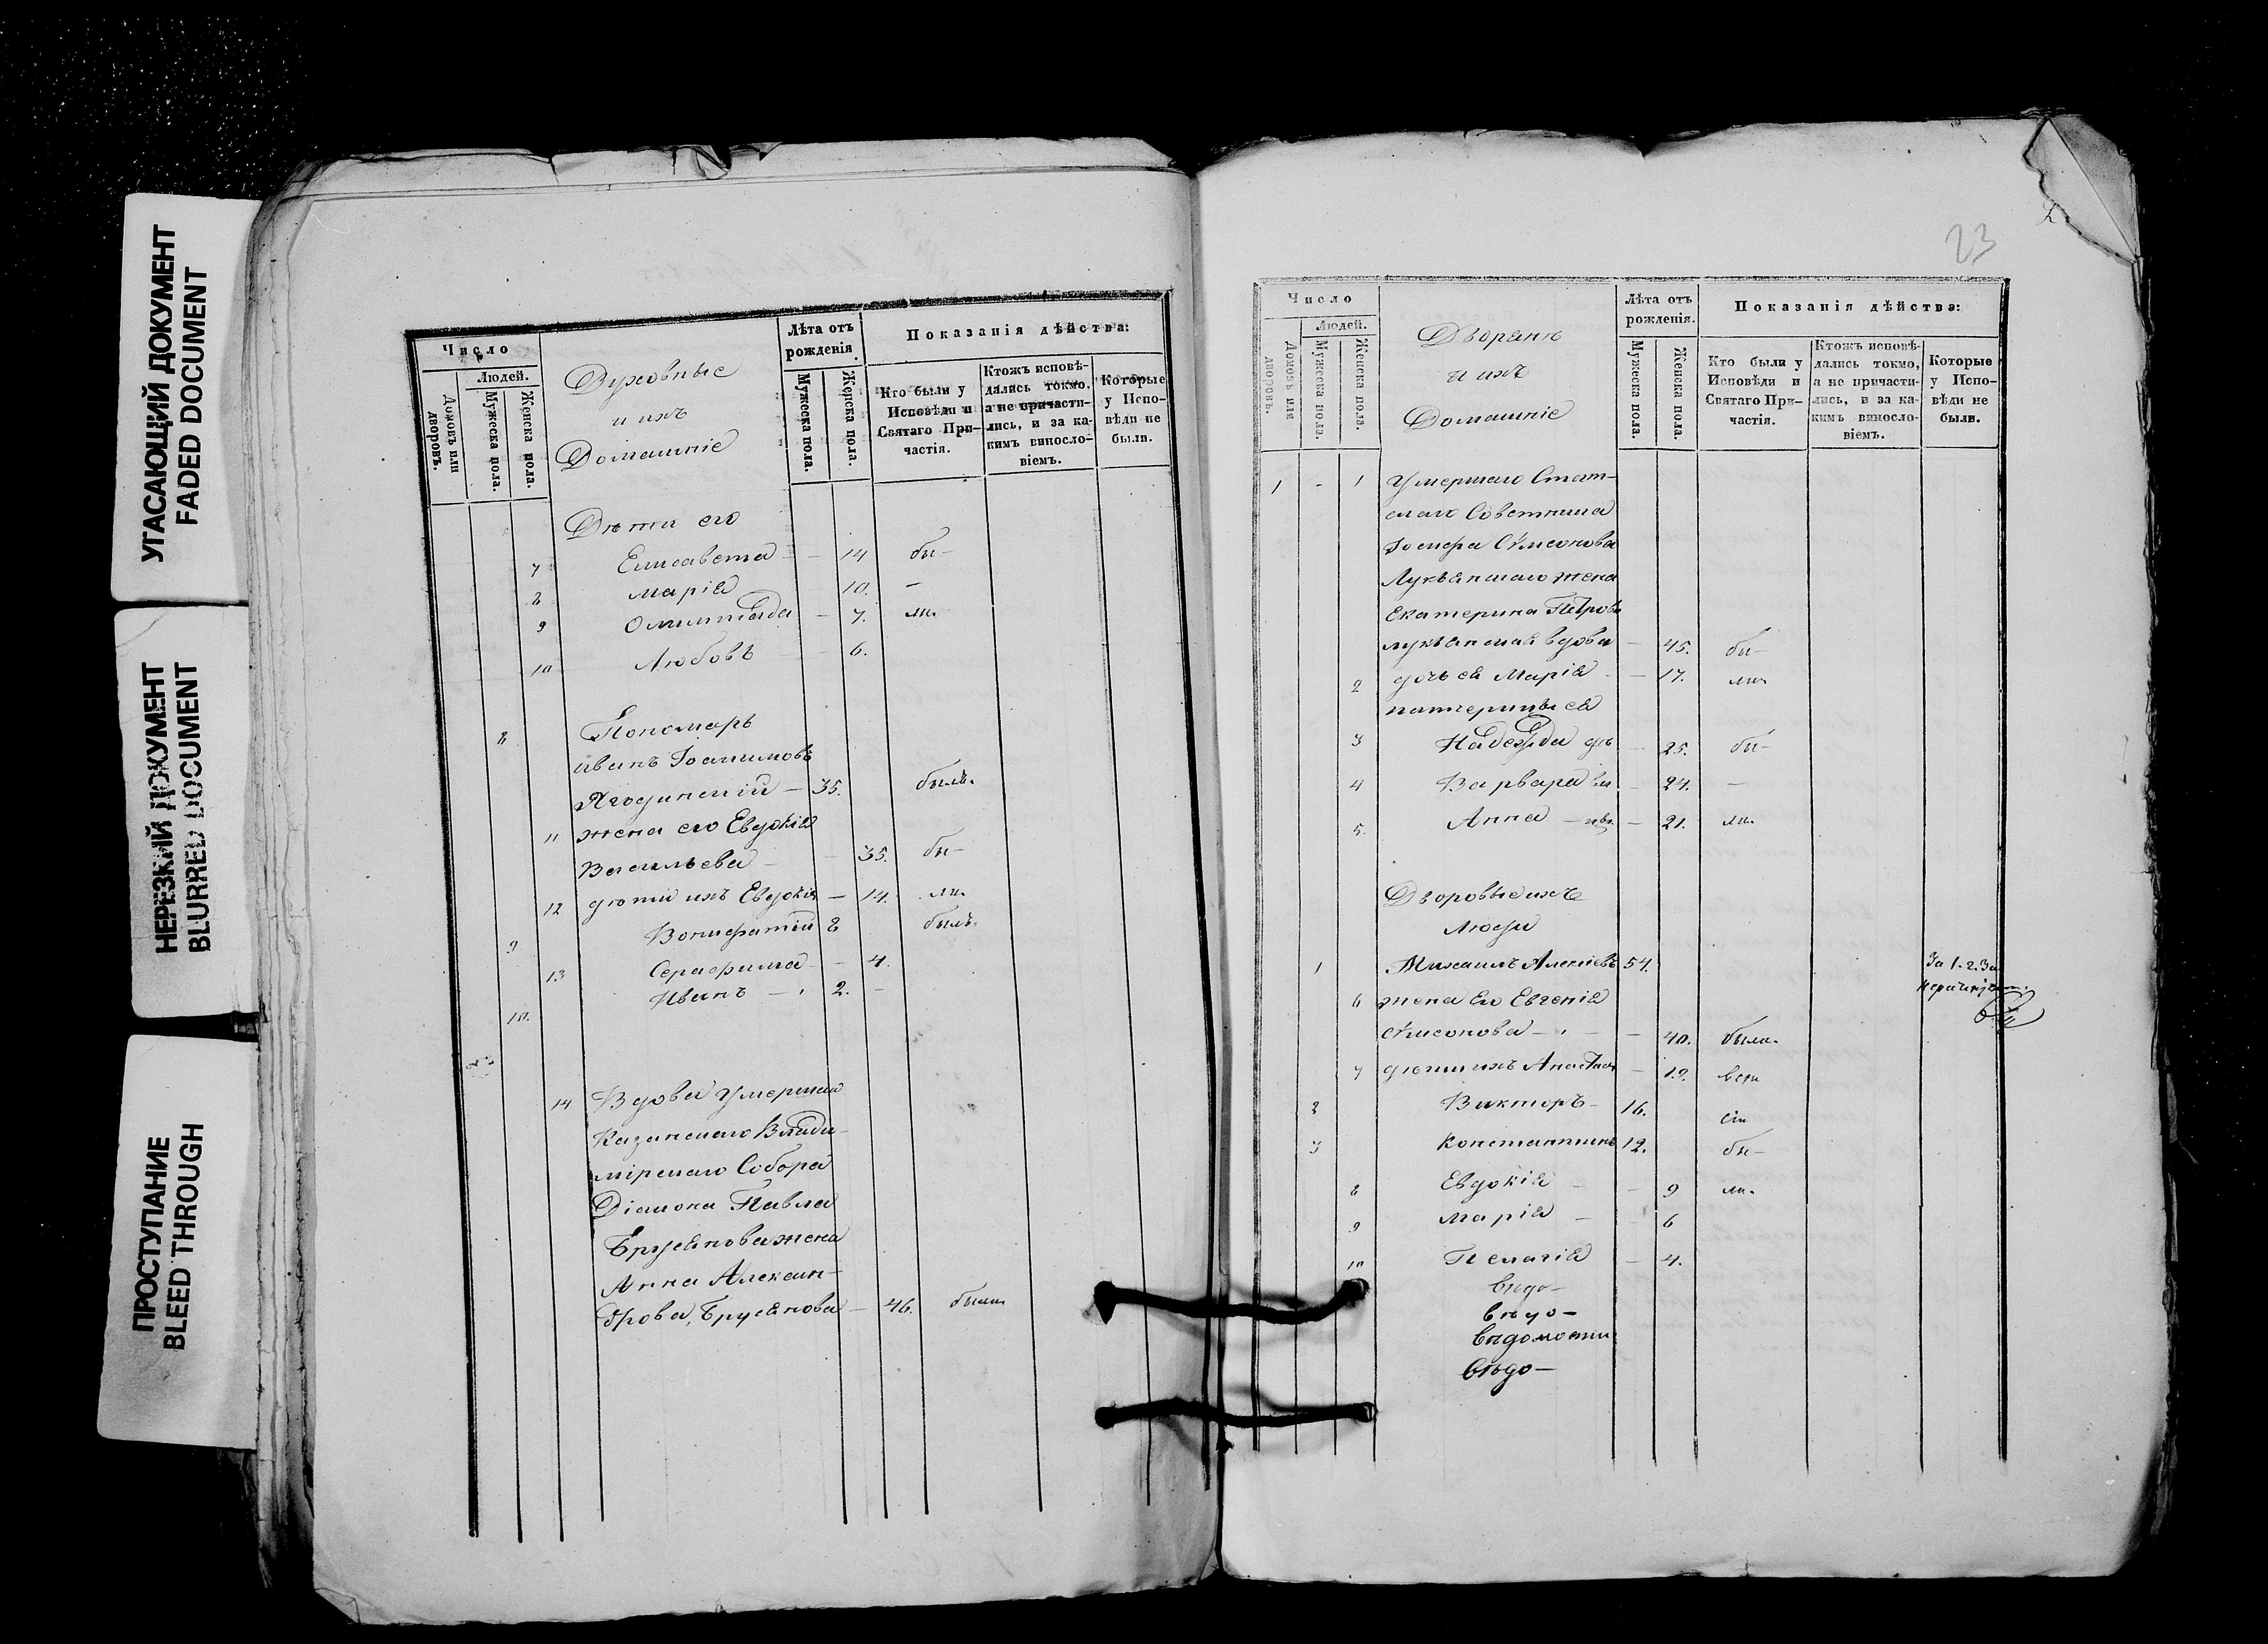 УГАСАЮЩИЙ ДОКУМЕНТ
FADED DOCUMENT
НЕРЕЗКИЙ ДОКУМЕНТ
BLURRED DOCUMENT
ПРОСТУПАНИЕ
BLEED THROUGH
Число
Людей.
Домовъ или дворовъ.
Мужеска пола.
Женска пола.
Духовные
и ихъ
Домашніе
Лѣта отъ рожденія
Мужеска пола.
Женска пола.
Показанія дѣйства:
Кто были у Исповѣди и Святаго При-частія.
Ктожъ исповѣ-дались токмо, а не причасти-лись, и за ка-кимъ винослo-віемъ.
Которые у Испо-вѣди не были.
Дѣти его
7 Елисавета — 14 бы-
8 Марія 10. —
9 Олимпіада — 7. ли.
10 Любовь — 6.
8 Пономарь
Иванъ Іоакимовъ
Ягодинскій — 35. былъ.
11 жена его Евдокія
Васильева — 35. бы-
12 дѣти ихъ Евдокія — 14. ли.
9 Вонифатій 8 былъ.
13 Серафима — 4.
10. Иванъ — 2. —
14 Вдова Умершаго
Казанскаго Влади-
мірскаго Собора
Діакона Павла
Брусянова жена
Анна Алексан-
дрова, Брусянова — 46. была
23
Число
Людей.
Домовъ или дворовъ.
Мужеска пола.
Женска пола.
Дворянъ
и ихъ
Домашніе
Лѣта отъ рожденія.
Мужеска пола.
Женска пола.
Показанія дѣйства:
Кто были у Исповѣди и Святаго При-частія.
Ктожъ исповѣ-дались токмо, а не причасти-лись, и за ка-кимъ винослo-віемъ.
Которые у Испо-вѣди не были.
1 - 1 Умершаго Стат-
скаго Советника
Іосифа Сѵмеонова
жена
Екатерина Петрова
вдова — 45. бы-
2 дочь ея Марія — 17. ли.
падчерицы ея
3 Надежда — 25. бы-
4 Варвара — 24. —
5. Анна — 21. ли.
Дворовые ихъ
Люди
1 Михаилъ Алексіевъ 54. За 1. г. За
6 жена Его Евгенія
Сѵмеонова — 40. была.
7 дѣти ихъ Анастасія — 19.
2 Викторъ 16.
3 Константинъ 12. бы-
8 Евдокія — 9 ли.
9 Марія — 6
10 Пелагія — 4.
Вѣдо-
вѣдо-
вѣдомости
Вѣдо-